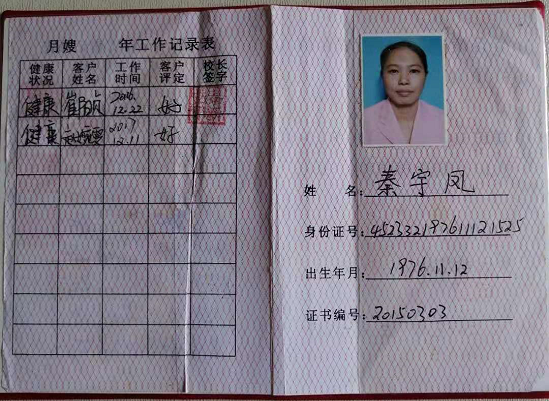 月嫂 年工作记录表
健康状况 客户姓名 工作时间 客户评定 校长签字
健康 2016.12.22 好
健康 2017.12.11 好
姓 名：秦宇凤
身份证号：452332197611121525
出生年月：1976.11.12
证书编号：20150303